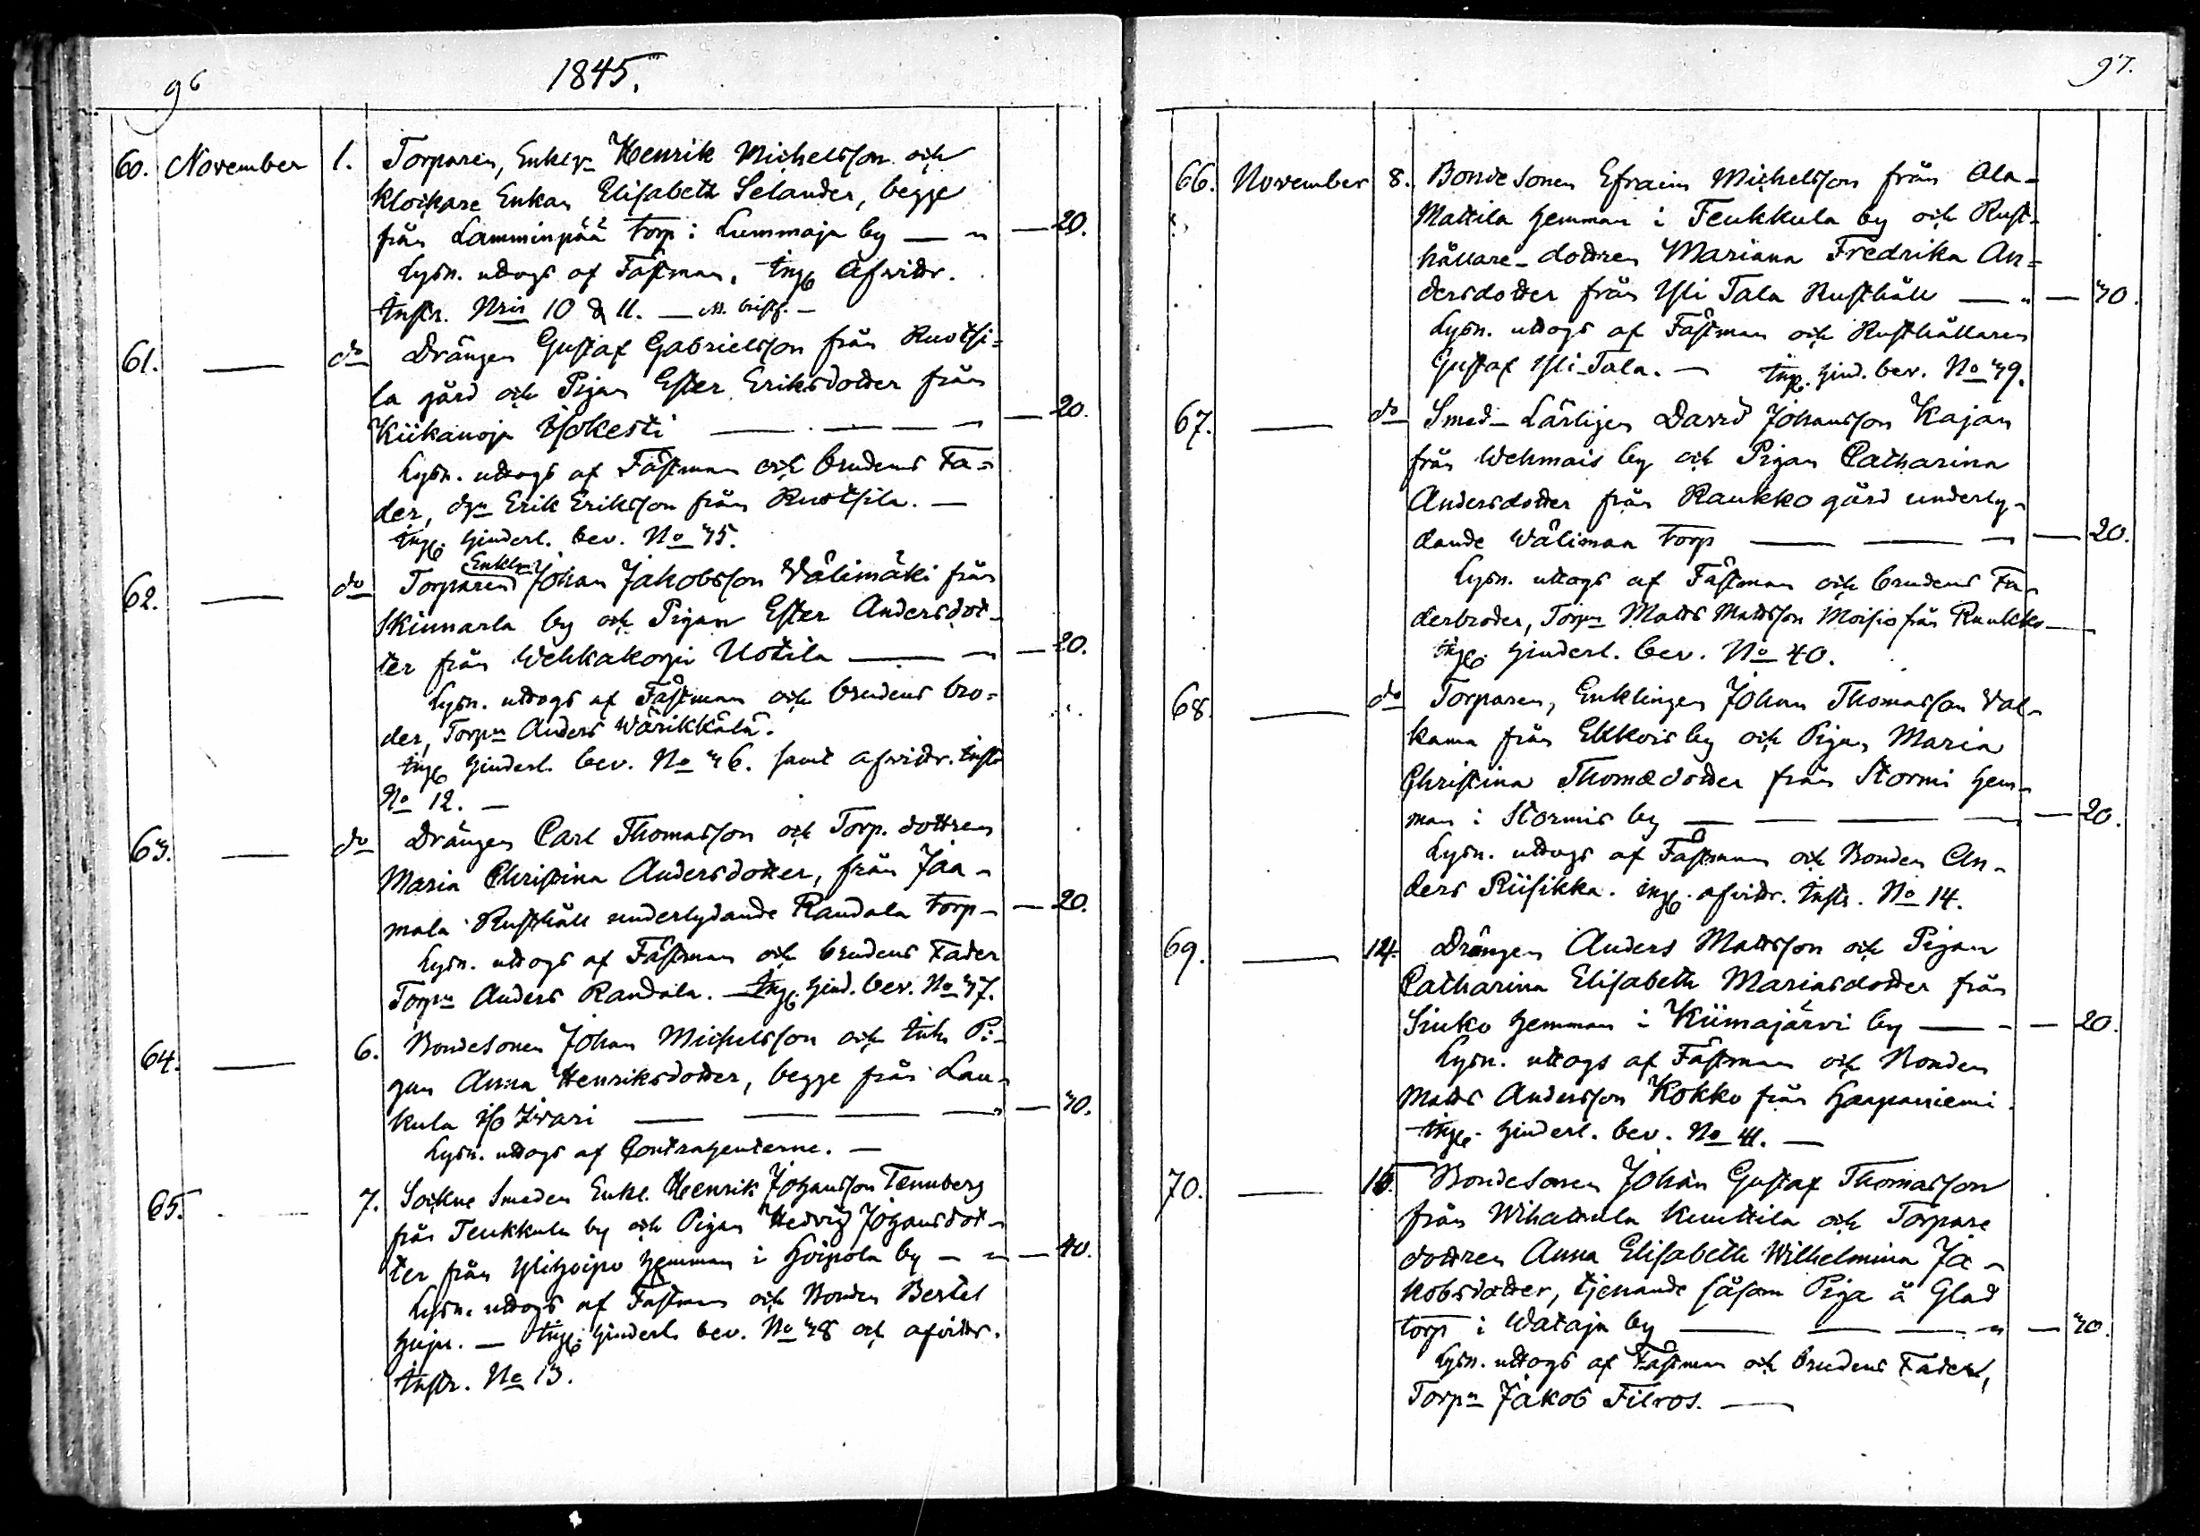 96
1845.
60. November 1. Torparen, Enkl:n Henrik Michelsson och
klockare Enkan Elisabeth Selander, begge
från Lamminpää torp i Lummaja by — " — 20.
Lysn. uttogs af Fästman. Ing. Afvittr.
instr. Nris 10 & 11. —
61. — do Drängen Gustaf Gabrielsson från Ruotsi=
la gård och Pigan Ester Eriksdotter från
Kiikanoja Yskesti — — — 20.
Lysn. uttogs af Fästman och brudens Fa=
der, Erik Eriksson från Ruotsila. —
Ing. hinderl. bev. No 35.
62. — do Torparen Enkl:n Johan Jakobsson Välimäki från
Skinnarla by och Pigan Ester Andersdot-
ter från Wehkakorpi Uotila — " — 20.
Lysn. uttogs af Fästman och brudens bro=
der, Torp:n Anders Wärikkälä.
Ing. hinderl. bev. No 36. samt afvittr. instr.
No 12. —
63. — do Drängen Carl Thomasson och Torp. dottren
Maria Christina Andersdotter, från Jaa-
mala Rusthåll underlydande Randala torp — — 20.
Lysn. uttogs af Fästman och brudens Fader
Torp:n Anders Randala. — Ing. hind. bev. No 37.
64. — 6. Bondesonen Johan Michelsson och Pi-
gan Anna Henriksdotter, begge från Lau-
kula Iso Iivari — — — " — 30.
Lysn. uttogs af Contrahenterne. —
65. — 7. Sockne Smeden Enkl. Henrik Johansson Tennberg
från Teukkula by och Pigan Hedvig Johansdot-
ter från Ylihoipo hemman i Hoipola by — " — 40.
Lysn. uttogs af Fästman och Bonden Bertel
— Ing. hinderl. bev. No 38 och afvittr.
instr. No 13.
97.
66. November 8. Bondesonen Efraim Michelsson från Ala=
Mattila hemman i Teukkula by och Rust-
hållare-dottren Mariana Fredrika An=
dersdotter från Yli Tala Rusthåll — " — 30.
Lysn. uttogs af Fästman och Rusthållaren
Gustaf Yli-Tala. — Ing. hind. bev. No 39.
67. — do Smed-Lärlingen David Johansson Kajan
från Wehmais by och Pigan Catharina
Andersdotter från Raukko gård underly-
dande Wäliman torp — — — 20.
Lysn. uttogs af Fästman och brudens Fa-
derbroder, Torp:n Matts Mattsson Moisio från Raukko —
Ing. hinderl. bev. No 40.
68. — do Torparen, Enklingen Johan Thomasson Val-
kama från Ekkois by och Pigan Maria
Christina Thomædotter från Stormi hem-
man i Stormis by — — — — 20.
Lysn. uttogs af Fästman och Bonden An-
ders Riisikka. Ing. afvittr. instr. No 14.
69. — 14. Drängen Anders Mattsson och Pigan
Catharina Elisabeth Mariasdotter från
Siuko hemman i Kiimajärvi by — — — 20.
Lysn. uttogs af Fästman och Bonden
Matts Andersson Kokko från Haapaniemi.
Ing. hinderl. bev. No 41. —
70. — 15. Bondesonen Johan Gustaf Thomasson
från Wihattula Knuttila och Torpare
dottren Anna Elisabeth Wilhelmina Ja-
kobsdotter, tjenande såsom Piga å Glad
torp i Wataja by — — — " — 30.
Lysn. uttogs af Fästman och brudens Fader,
Torp:n Jakob Filros. —